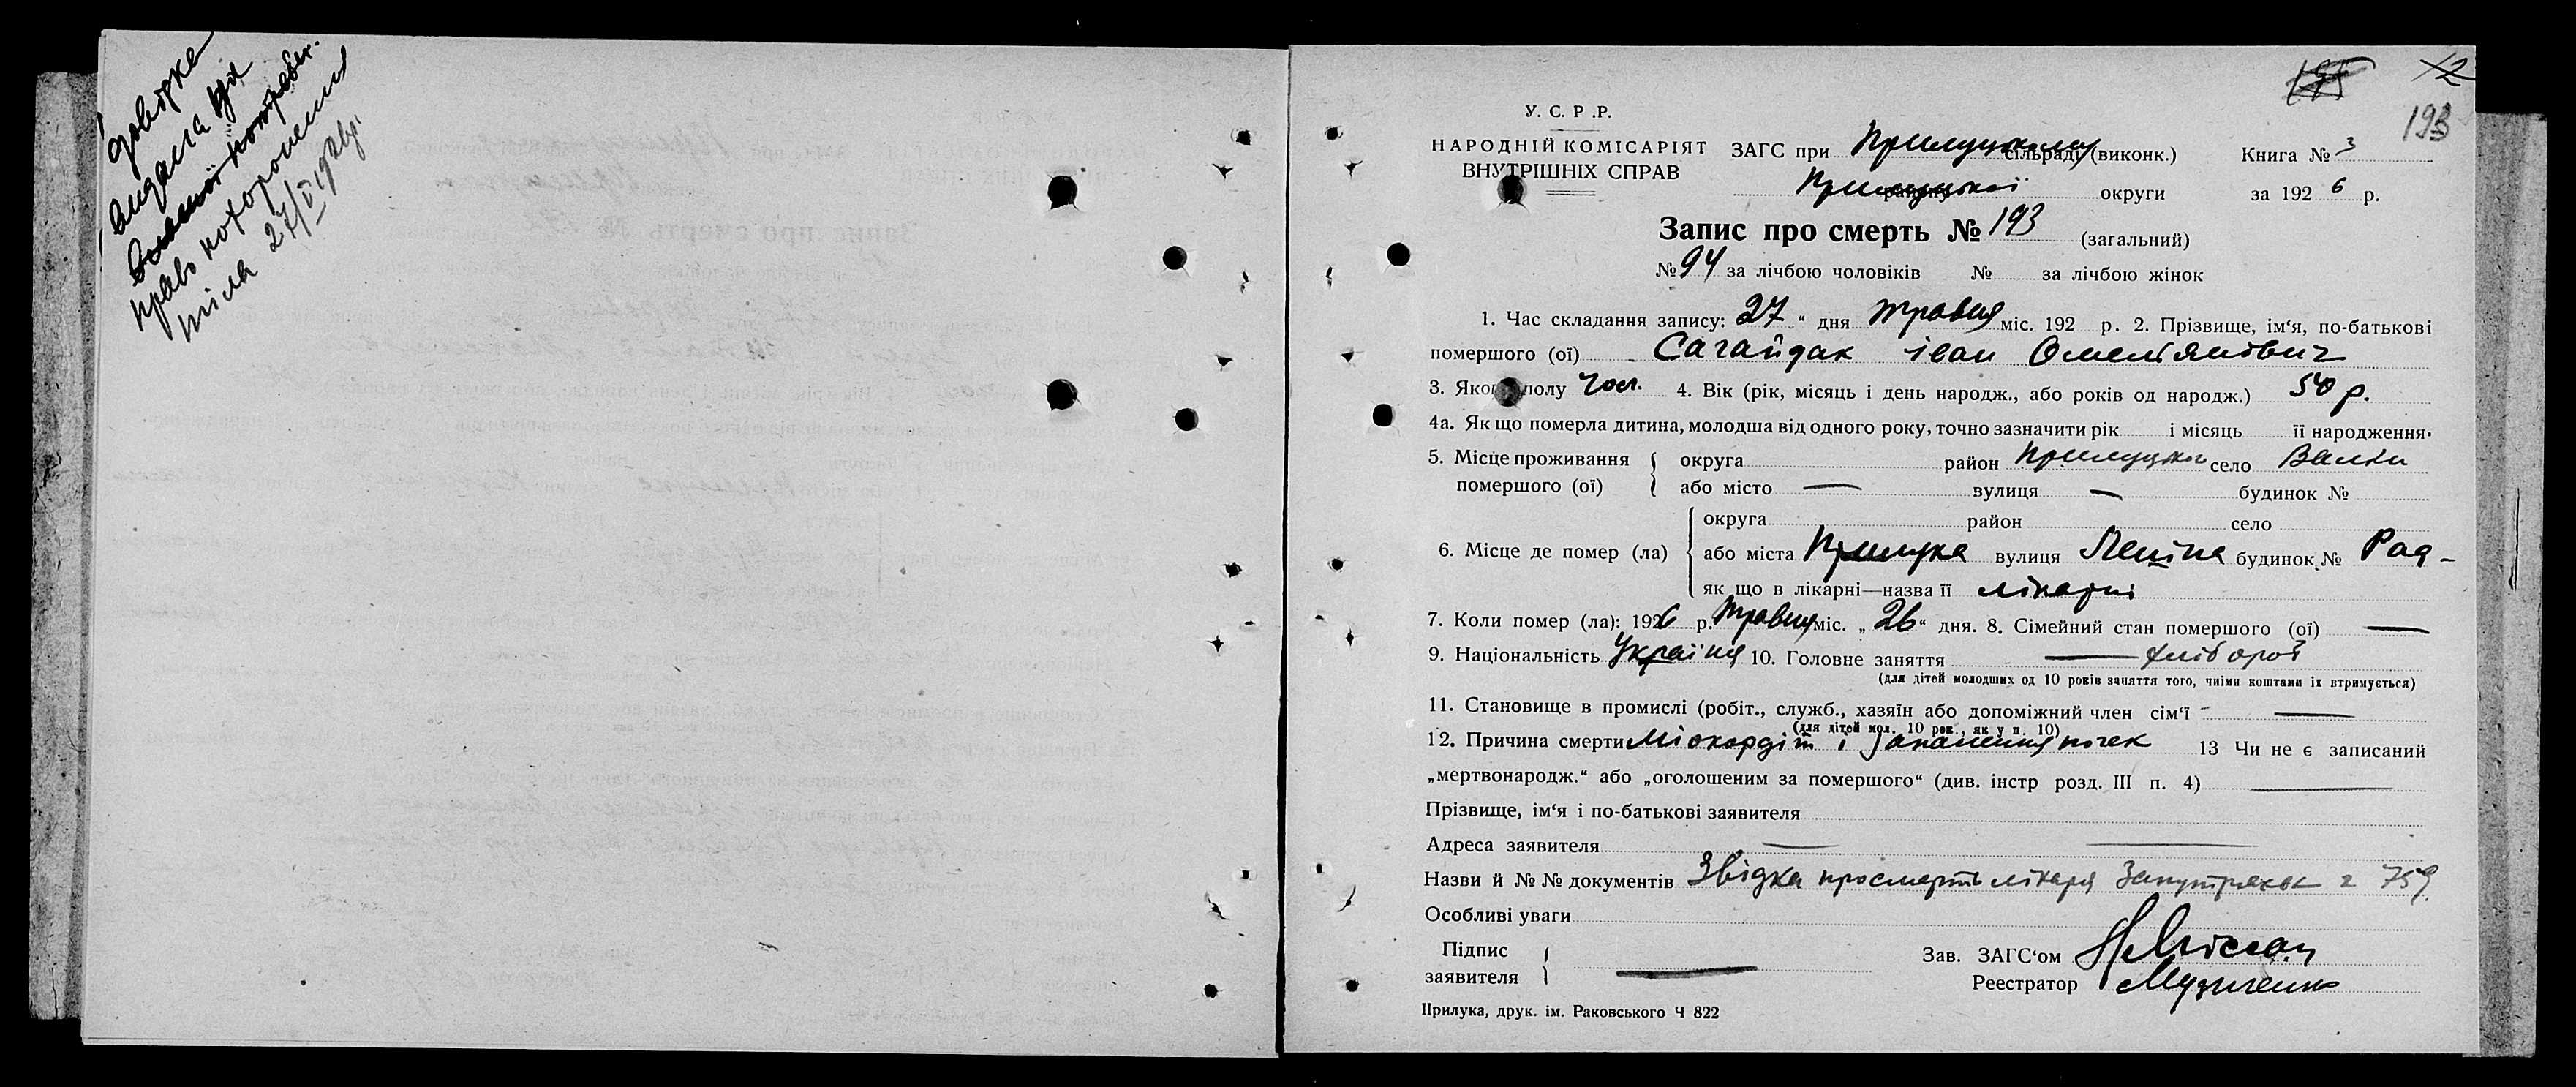 довідка
видана для
власної потреби.
право похоронення
тіла 27/V 1926 р.
193
У. С. Р. Р.
НАРОДНІЙ КОМІСАРІЯТ
ВНУТРІШНІХ СПРАВ
ЗАГС при Прилуцькому сільраді (виконк.)
Прилуцької району округи
Книга № 3
за 1926 р.
Запис про смерть № 193 (загальний)
№ 94 за лічбою чоловіків № за лічбою жінок
1. Час складання запису: 27 “ дня травня міс. 192 р. 2. Прізвище, ім‘я, по-батькові
помершого (ої) Сагайдак Іван Омелянович
3. Якого полу чол. 4. Вік (рік, місяць і день народж., або років од народж.) 50 р.
4а. Як що померла дитина, молодша від одного року, точно зазначити рік і місяць її народження.
5. Місце проживання помершого (ої) округа район Прилуцьк село Валки
або місто — вулиця — будинок №
6. Місце де помер (ла) округа район село
або міста Прилука вулиця Леніна будинок № Рад-
як що в лікарні—назва її лікарні
7. Коли помер (ла): 1926 р. травня міс. „ 26 “ дня. 8. Сімейний стан помершого (ої) —
9. Національність Україня 10. Головне заняття — хлібороб
(для дітей молодших од 10 років заняття того, чиїми коштами їх втримується)
11. Становище в промислі (робіт., служб., хазяїн або допоміжний член сім‘ї —
(для дітей мол. 10 рок., як у п. 10)
12. Причина смерти Міокардіт і запалення почек 13 Чи не є записаний
„мертвонародж.“ або „оголошеним за помершого“ (див. інстр розд. III п. 4) —
Прізвище, ім‘я і по-батькові заявителя
Адреса заявителя — —
Назви й №№ документів Звідка про смерть лікаря 759
Особливі уваги
Підпис заявителя —
Зав. ЗАГС‘ом
Реестратор Музиченко
Прилука, друк. ім. Раковського Ч 822